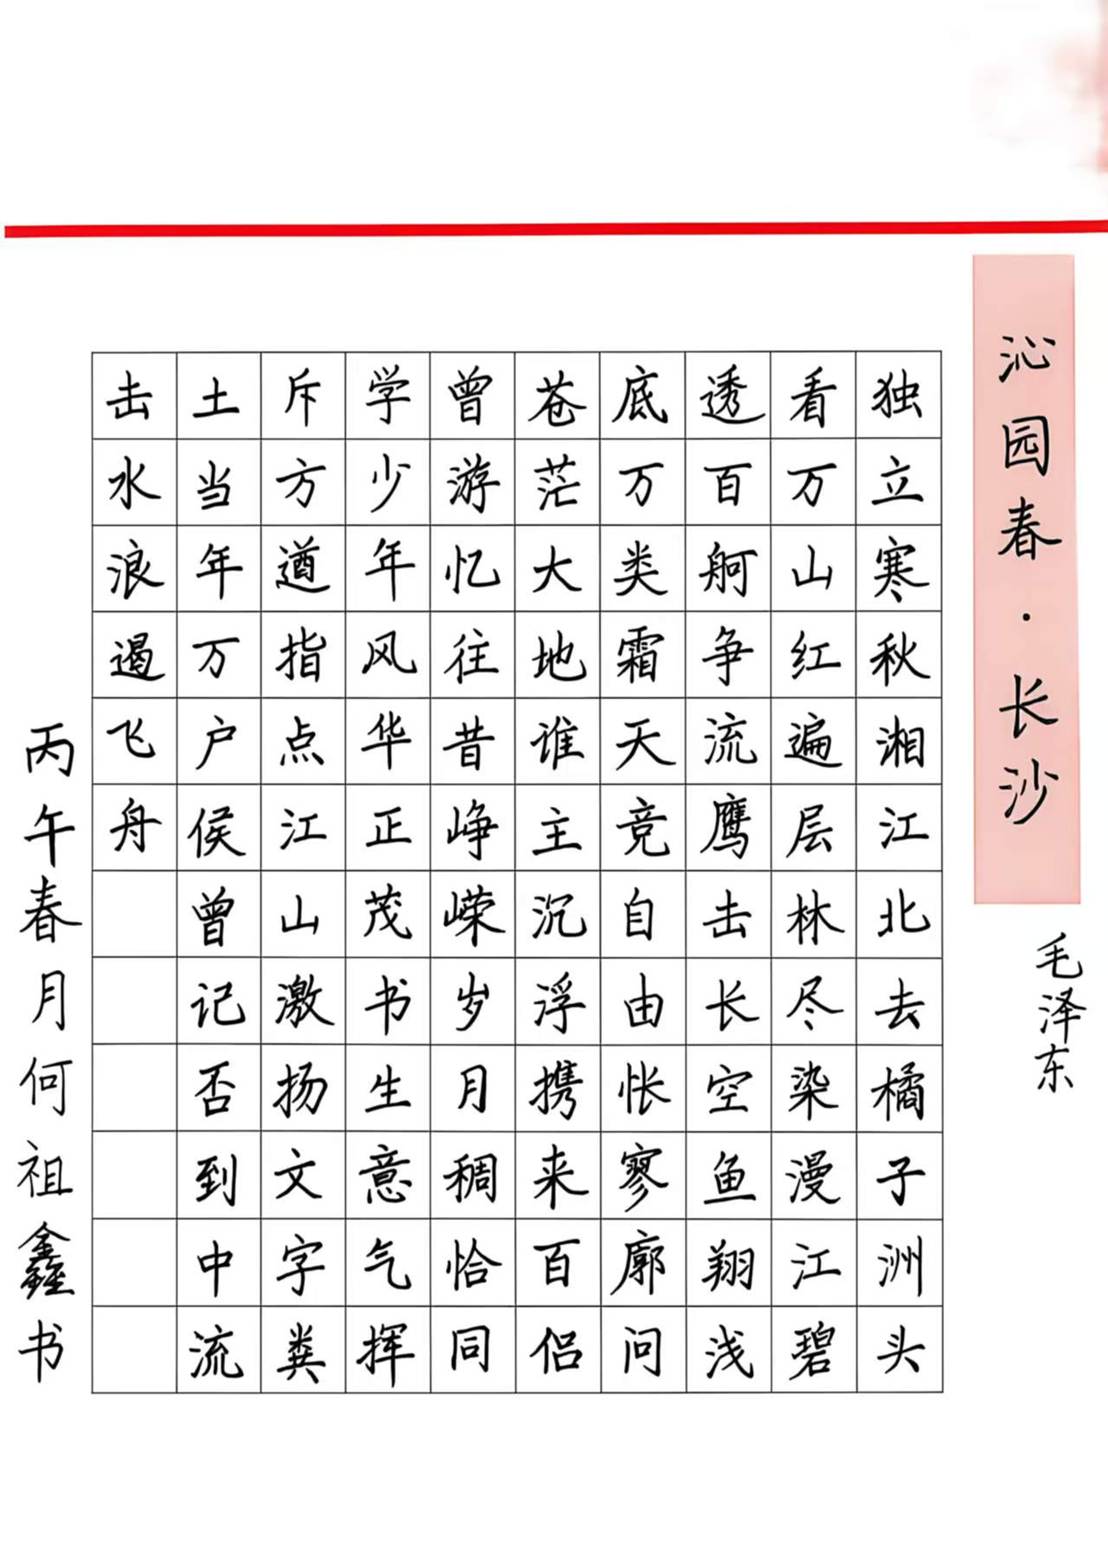 沁园春·长沙
毛泽东
独立寒秋湘江北去橘子洲头
看万山红遍层林尽染漫江碧
透百舸争流鹰击长空鱼翔浅
底万类霜天竞自由怅寥廓问
苍茫大地谁主沉浮携来百侣
曾游忆往昔峥嵘岁月稠恰同
学少年风华正茂书生意气挥
斥方遒指点江山激扬文字粪
土当年万户侯曾记否到中流
击水浪遏飞舟
丙午春月何祖鑫书